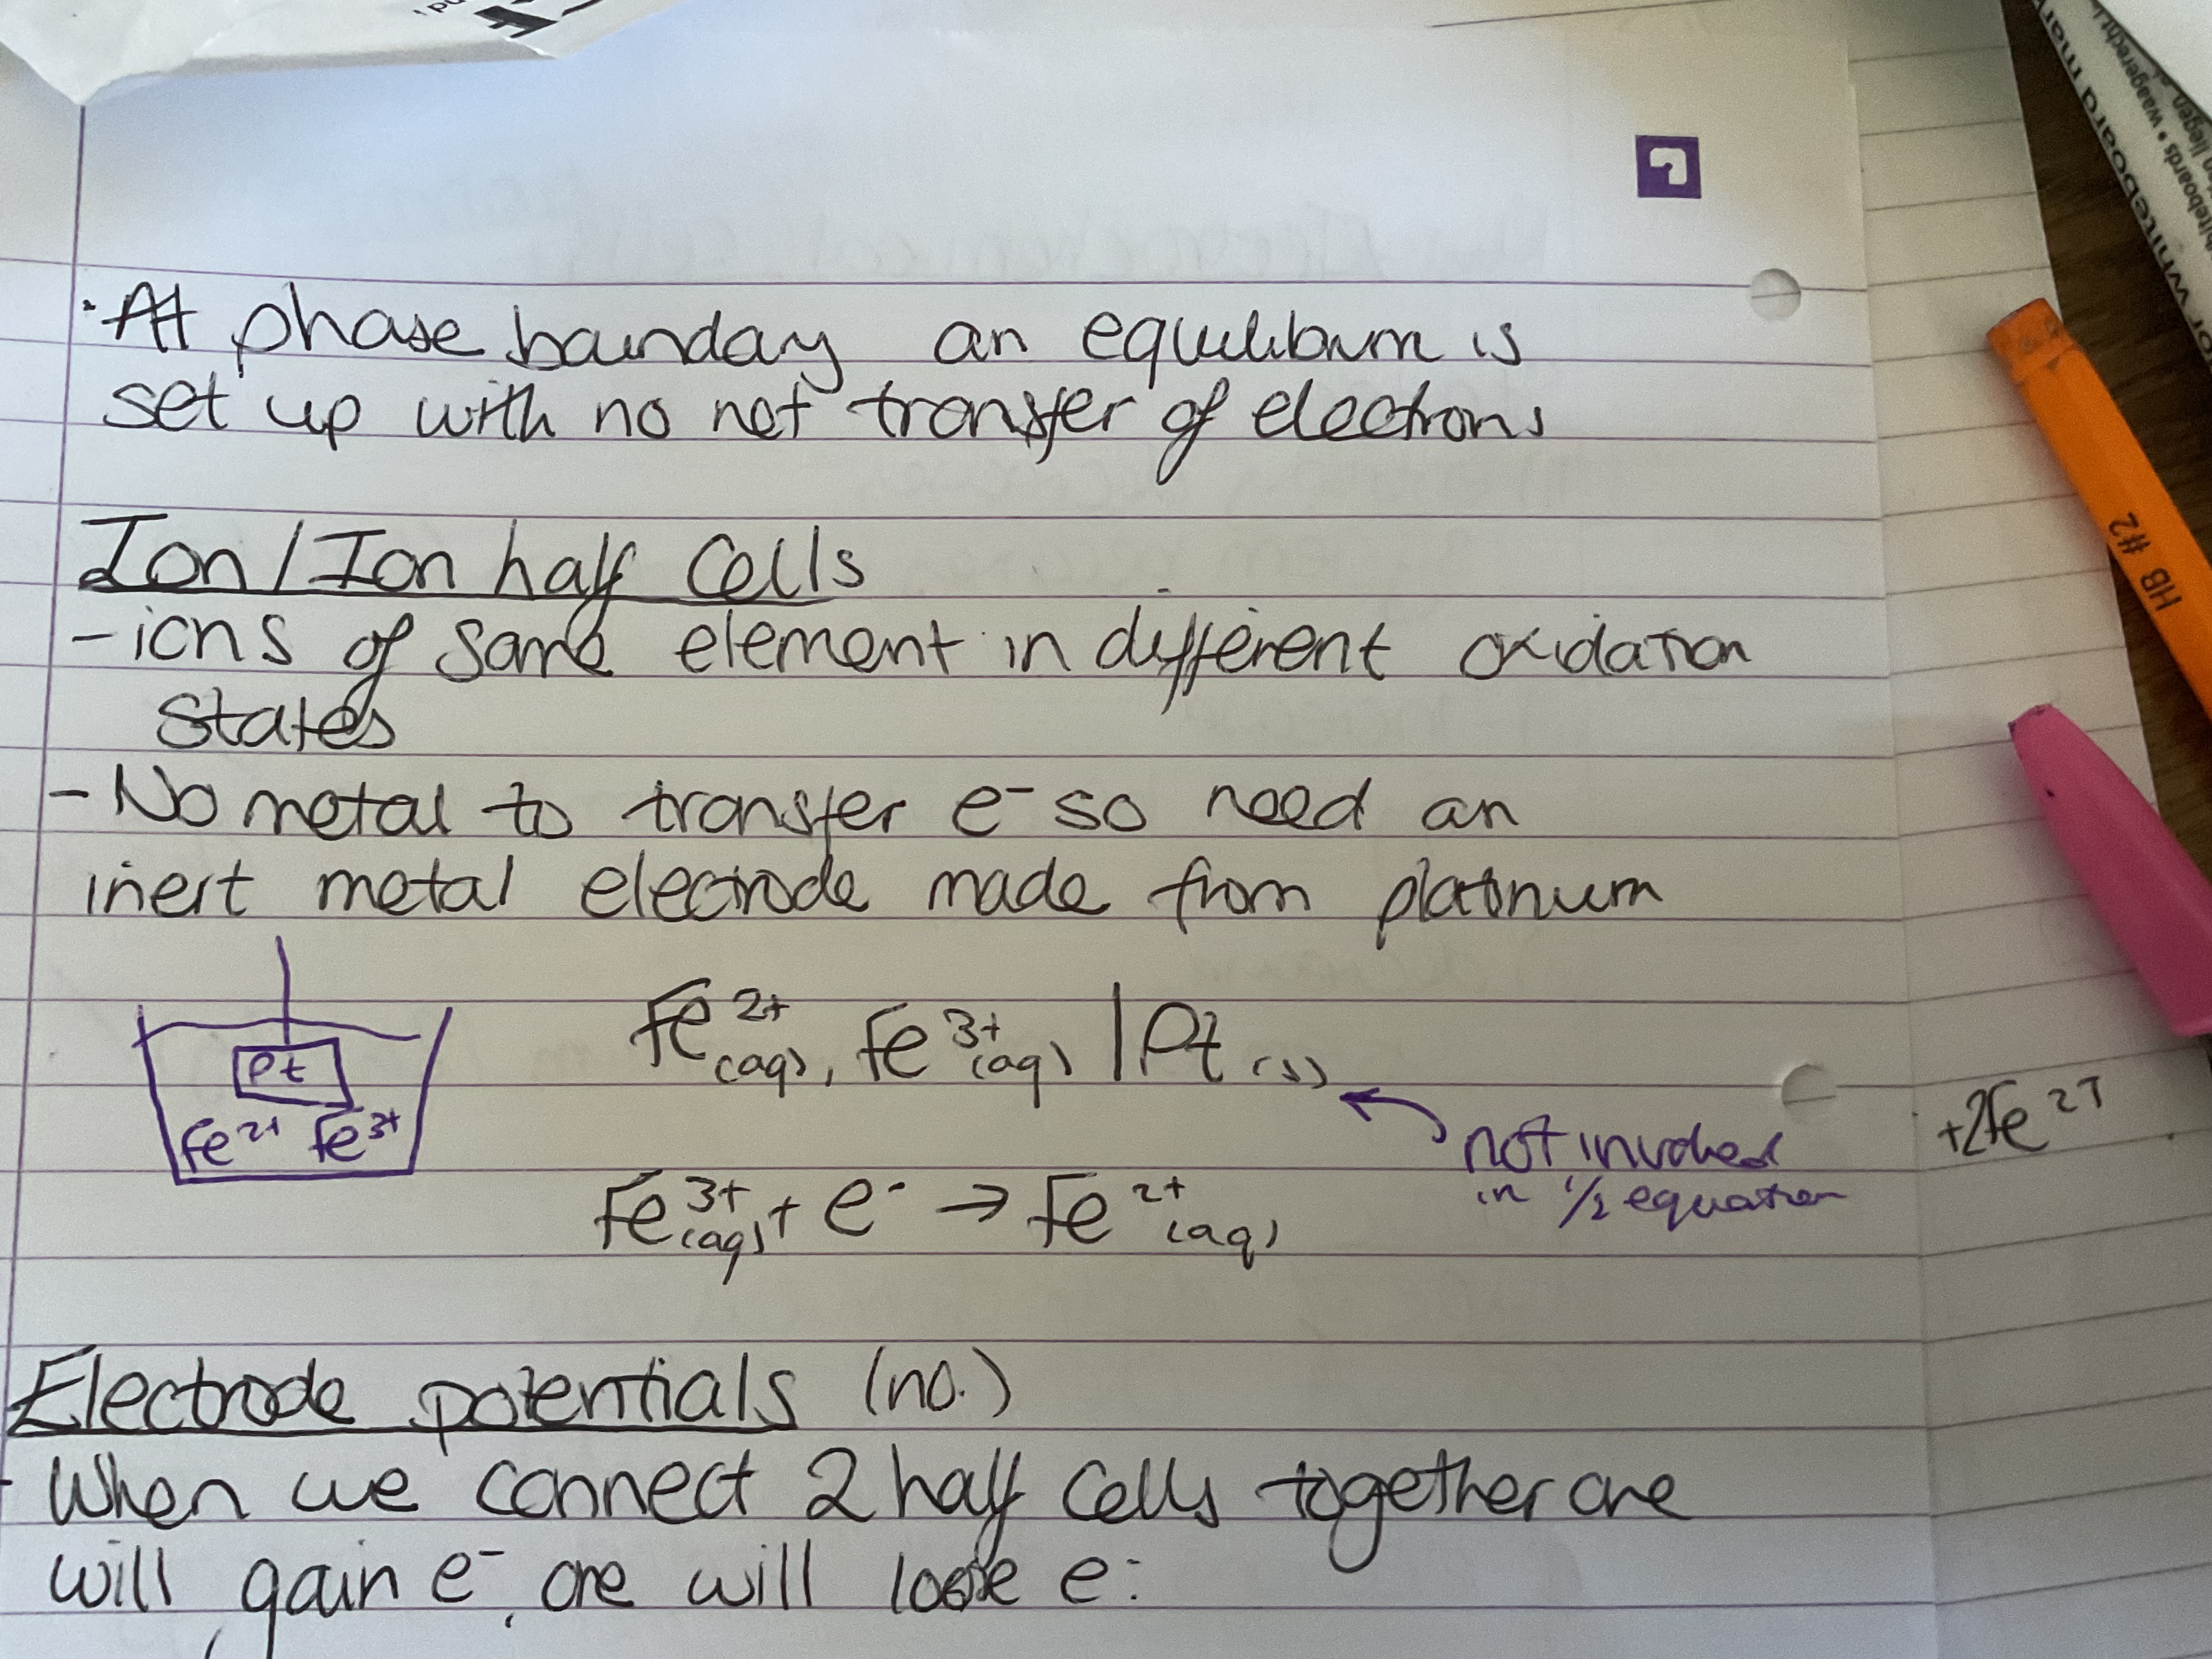 · At phase bounday an equilibrium is
set up with no net transfer of electrons
Ion/Ion half Cells
- ions of same element in different oxidation
states
- No metal to transfer e⁻ so need an
inert metal electrode made from platinum
Pt
Fe²⁺ Fe³⁺
Fe²⁺(aq), Fe³⁺(aq) | Pt (s)
not involved
in 1/2 equation
+2Fe²⁺
Fe³⁺(aq) + e⁻ → Fe²⁺(aq)
Electrode potentials (no.)
- When we connect 2 half cells together one
will gain e⁻, one will loose e⁻.
HB #2